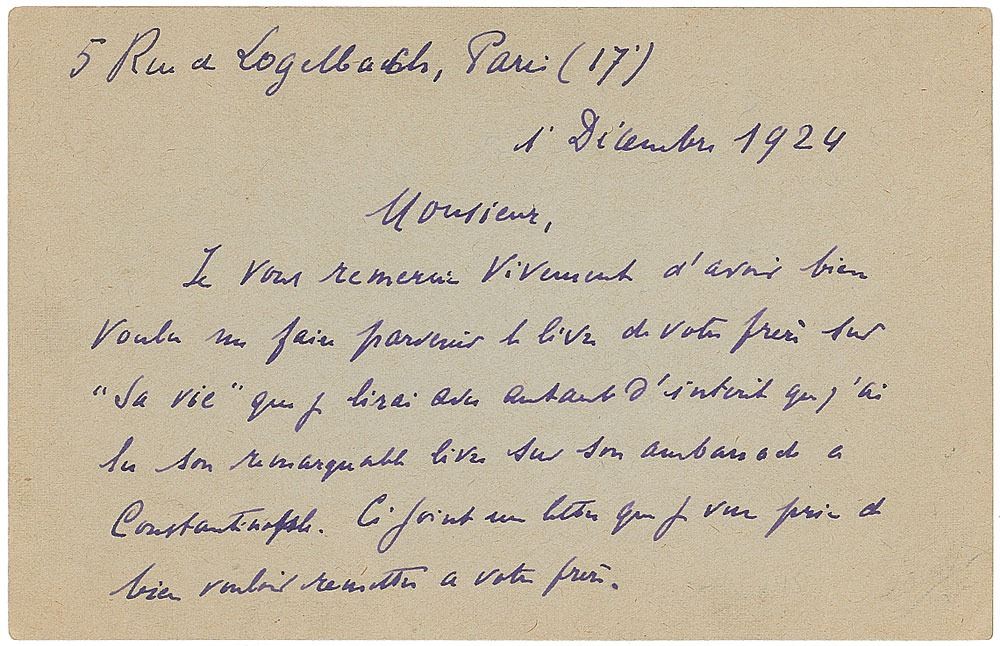 5 Rue de Logelbach, Paris (17e)
1 Décembre 1924
Monsieur,
Je vous remercie vivement d'avoir bien
voulu me faire parvenir le livre de votre frère sur
"Sa vie" que je lirai avec autant d'intérêt que j'ai
lu son remarquable livre sur son ambassade a
Constantinople. Ci joint une lettre que je vous prie de
bien vouloir remettre a votre frère.